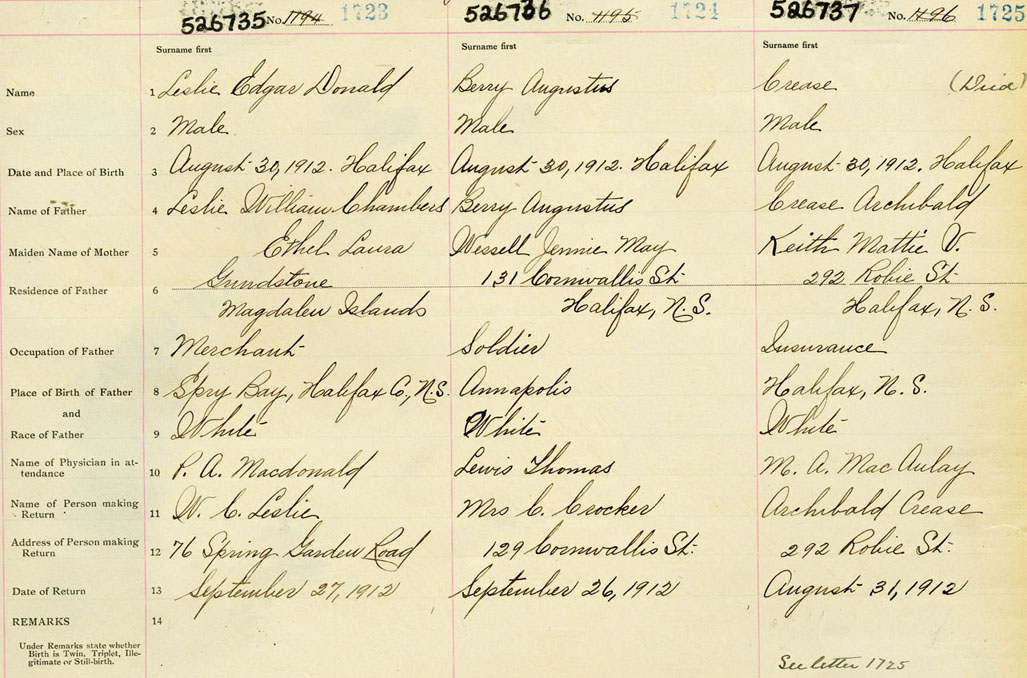 526735 No. 1194 1723 526736 No. 1195 1724 526737 No. 1196 1725
Surname first Surname first Surname first
Name 1 Leslie Edgar Donald Berry Augustus Crease (Died)
Sex 2 Male Male Male
Date and Place of Birth 3 August 30, 1912. Halifax August 30, 1912. Halifax August 30, 1912. Halifax
Name of Father 4 Leslie William Chambers Berry Augustus Crease Archibald
Maiden Name of Mother 5 Ethel Laura Wessell Jennie May Keith Mattie V.
Grindstone 131 Cornwallis St. 292 Robie St.
Residence of Father 6
Magdalen Islands Halifax, N.S. Halifax, N.S.
Occupation of Father 7 Merchant Soldier Insurance
Place of Birth of Father 8 Spry Bay, Halifax Co., N.S. Annapolis Halifax, N.S.
and
Race of Father 9 White White White
Name of Physician in at-
tendance 10 P. A. Macdonald Lewis Thomas M. A. MacAulay
Name of Person making
Return 11 W. C. Leslie Mrs C. Crocker Archibald Crease
Address of Person making
Return 12 76 Spring Garden Road 129 Cornwallis St. 292 Robie St.
Date of Return 13 September 27, 1912 September 26, 1912 August 31, 1912
REMARKS 14
Under Remarks state whether
Birth is Twin, Triplet, Ille-
gitimate or Still-birth.
See letter 1725